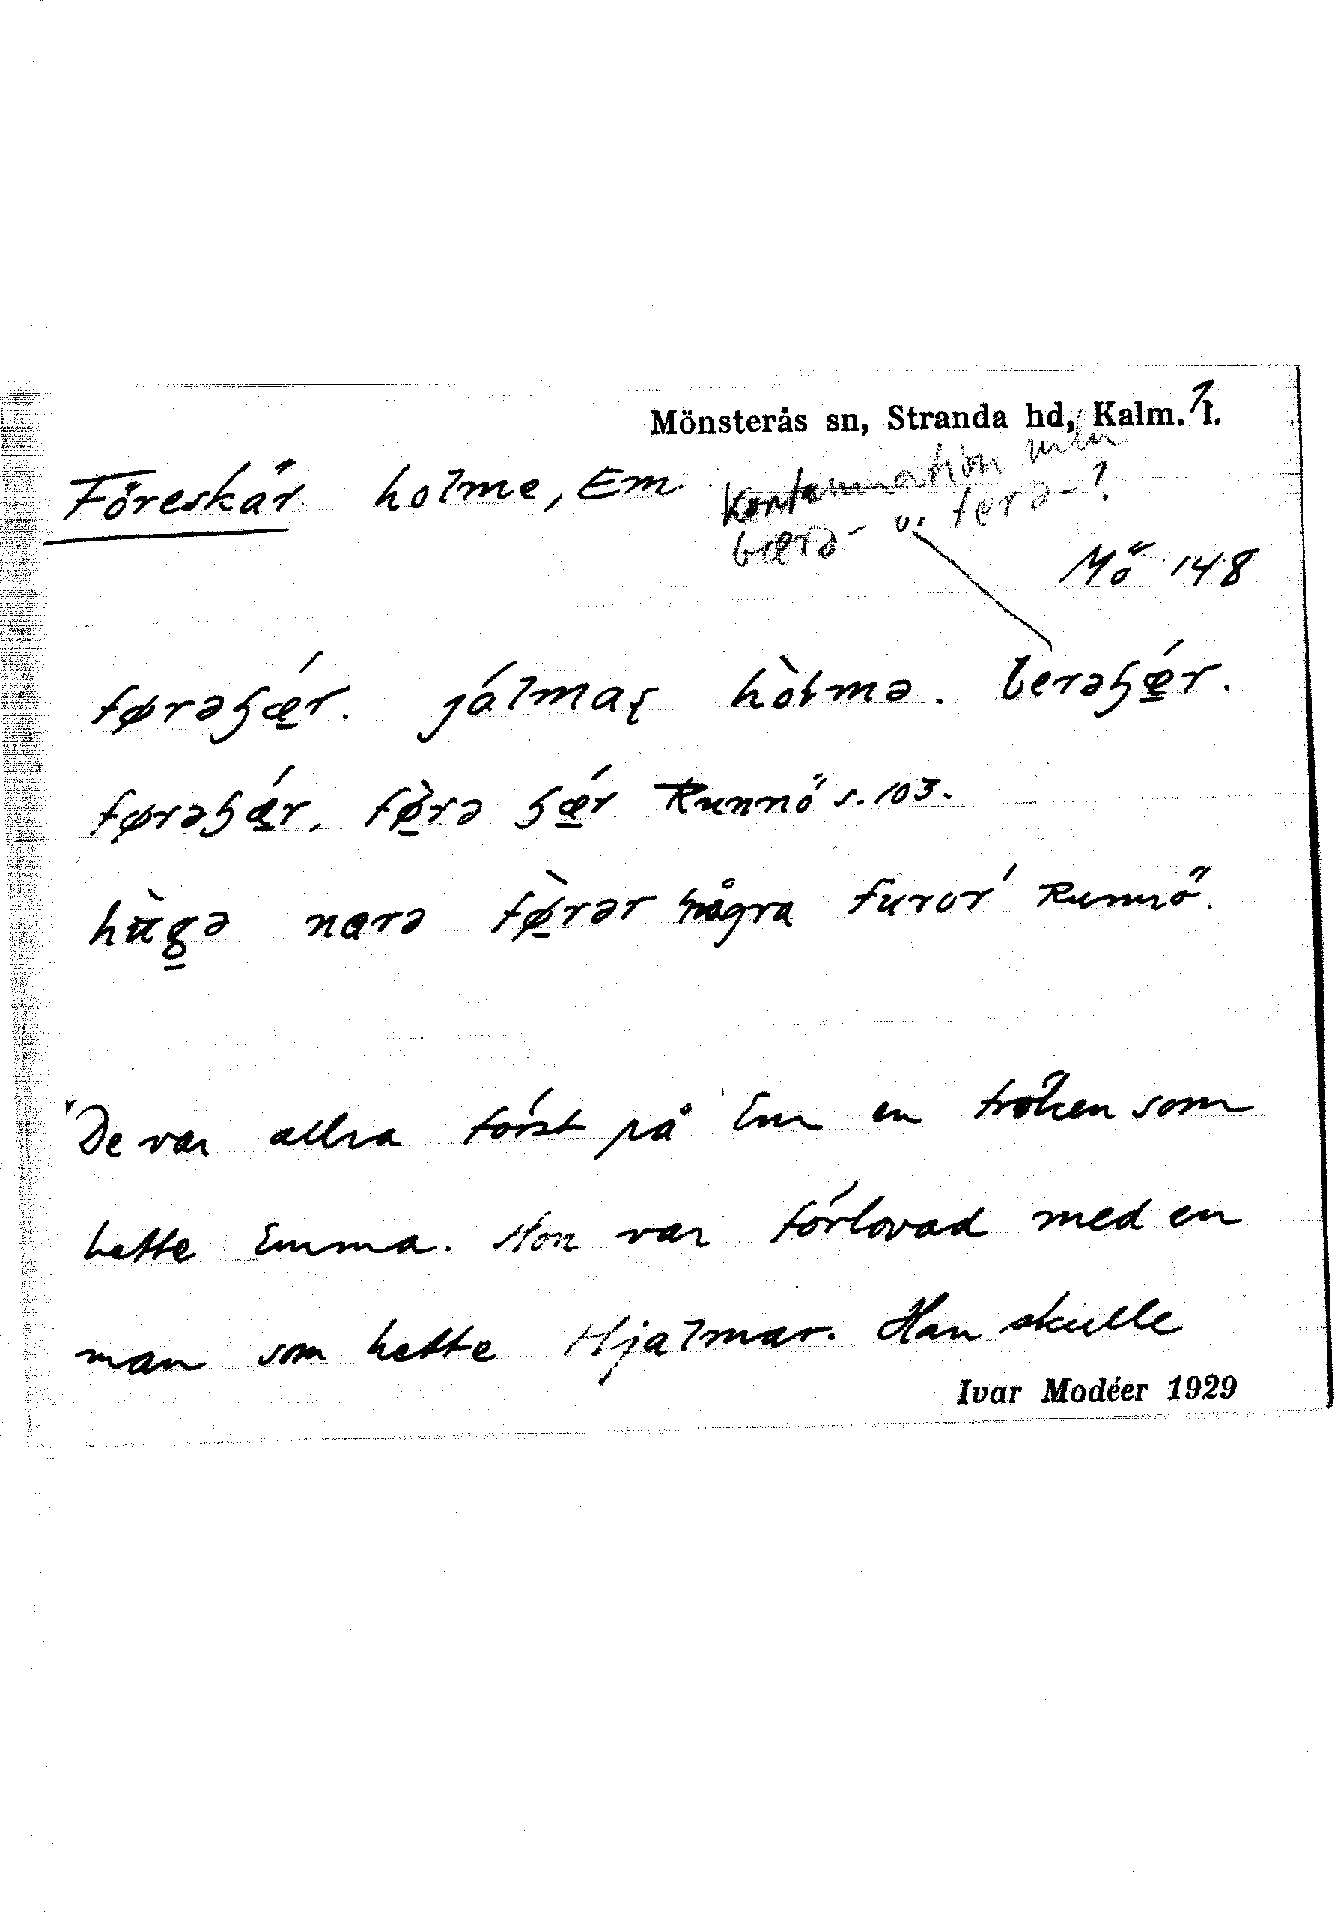 Mönsterås sn, Stranda hd, Kalm. l.
Föreskär holme, Em
Kontamination mellan
bærə- o. ferə-?
Mö 148
førəʃǽr. jálmaɽ hòlmə. berəʃǽr.
førəʃǽr, fø̀rə ʃǽr Runnö s. 103.
hùgə nərə fø̀rər 'några furor' Runnö.
"De var allra först på Em en fröken som
hette Emma. Hon var förlovad med en
man som hette Hjalmar. Han skulle
Ivar Modéer 1929